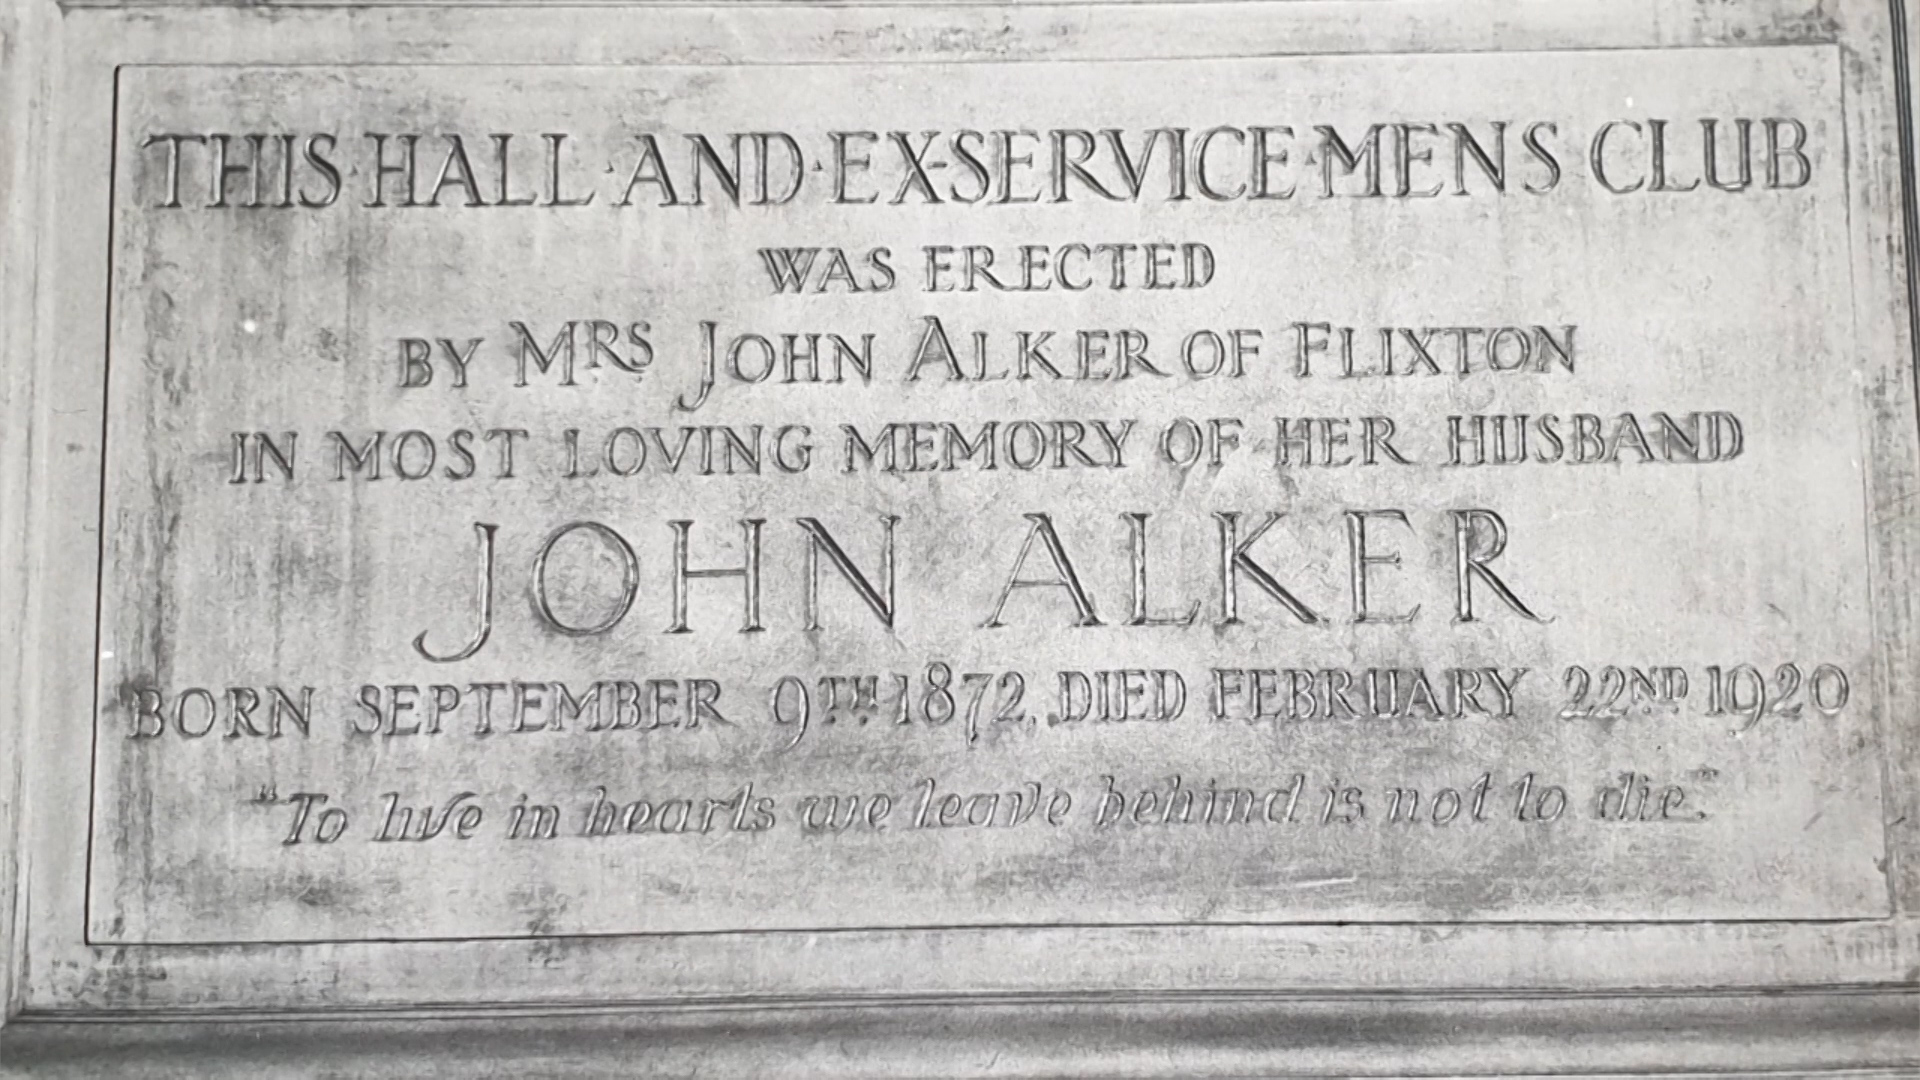 THIS·HALL·AND·EX-SERVICE·MENS CLUB
WAS ERECTED
BY MRS JOHN ALKER OF FLIXTON
IN MOST LOVING MEMORY OF HER HUSBAND
JOHN ALKER
BORN SEPTEMBER 9TH 1872, DIED FEBRUARY 22ND 1920
"To live in hearts we leave behind is not to die."